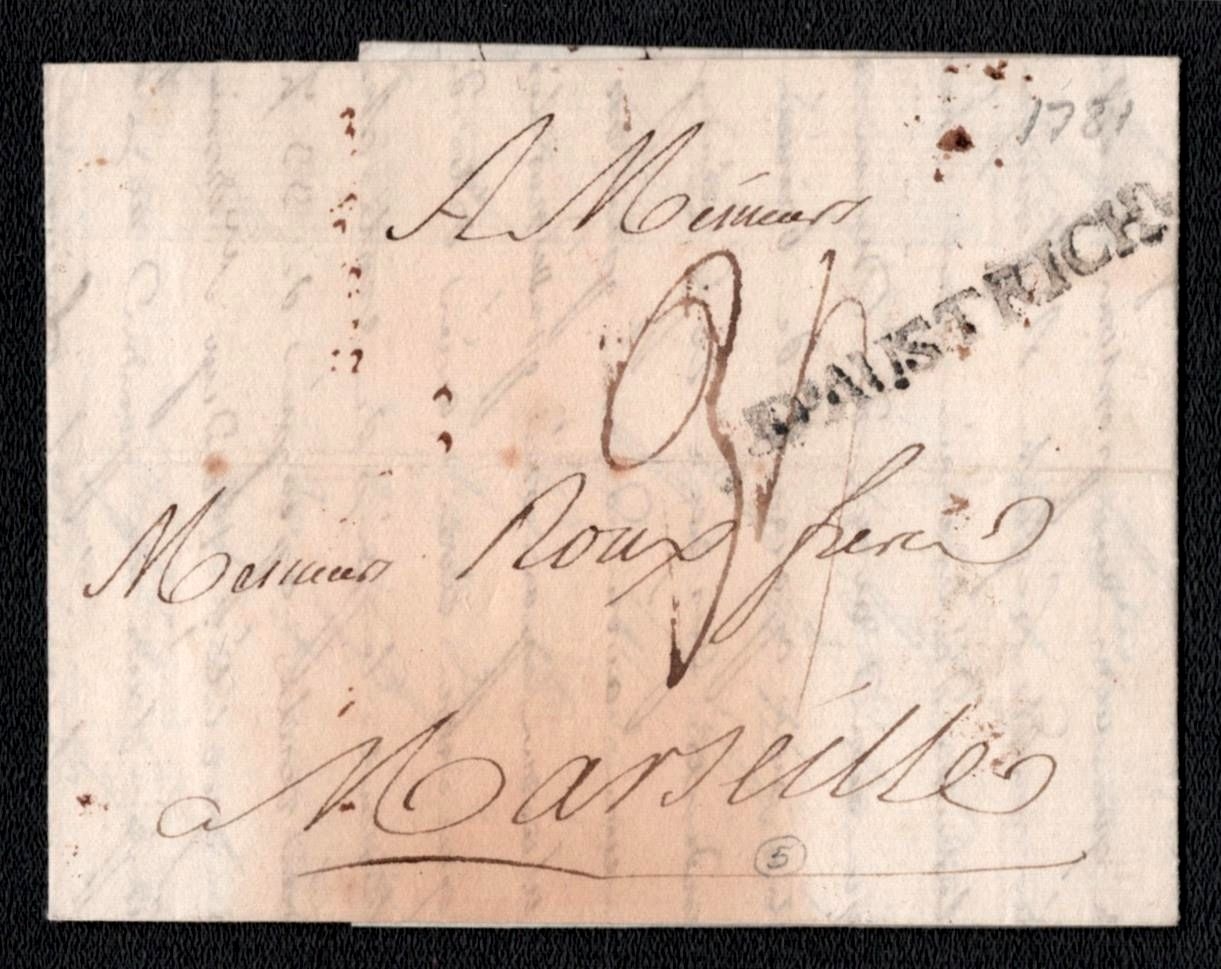 1781
A Messieurs
D'AUTRICHE
Messieurs Roux freres
a Marseille
5